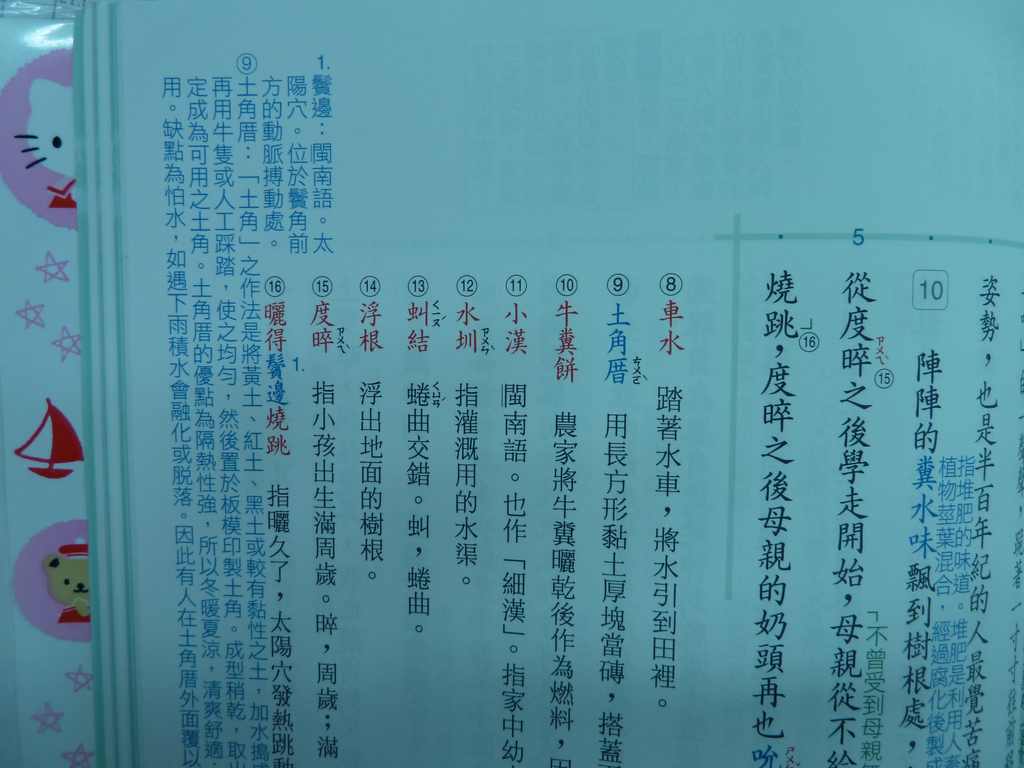 姿勢，也是半百年紀的人最覺苦
指堆肥的味道。堆肥是利用人
植物莖葉混合，經過腐化後製
10
陣陣的糞水味飄到樹根處，
5
不曾受到母親
從度晬之後學走開始，母親從不給
ㄗㄨㄟˋ
⑮
燒跳，度晬之後母親的奶頭再也吮
⑯
⑧車水　踏著水車，將水引到田裡。
⑨土角厝　用長方形黏土厚塊當磚，搭蓋
ㄘㄨㄛˋ
⑩牛糞餅　農家將牛糞曬乾後作為燃料，
⑪小漢　閩南語。也作「細漢」。指家中幼
⑫水圳　指灌溉用的水渠。
ㄗㄨㄣˋ
⑬虯結　蜷曲交錯。虯，蜷曲。
ㄑㄧㄡˊ
ㄑㄩㄢˊ
⑭浮根　浮出地面的樹根。
⑮度晬　指小孩出生滿周歲。晬，周歲；滿
ㄗㄨㄟˋ
⑯曬得鬢邊燒跳　指曬久了，太陽穴發熱跳動
1.
1.鬢邊：閩南語。太
陽穴。位於鬢角前
方的動脈搏動處。
⑨土角厝：「土角」之作法是將黃土、紅土、黑土或較有黏性之土，加水搗
再用牛隻或人工踩踏，使之均勻，然後置於板模印製土角。成型稍乾，取出
定成為可用之土角。土角厝的優點為隔熱性強，所以冬暖夏涼，清爽舒適；
用。缺點為怕水，如遇下雨積水會融化或脫落。因此有人在土角厝外面覆以